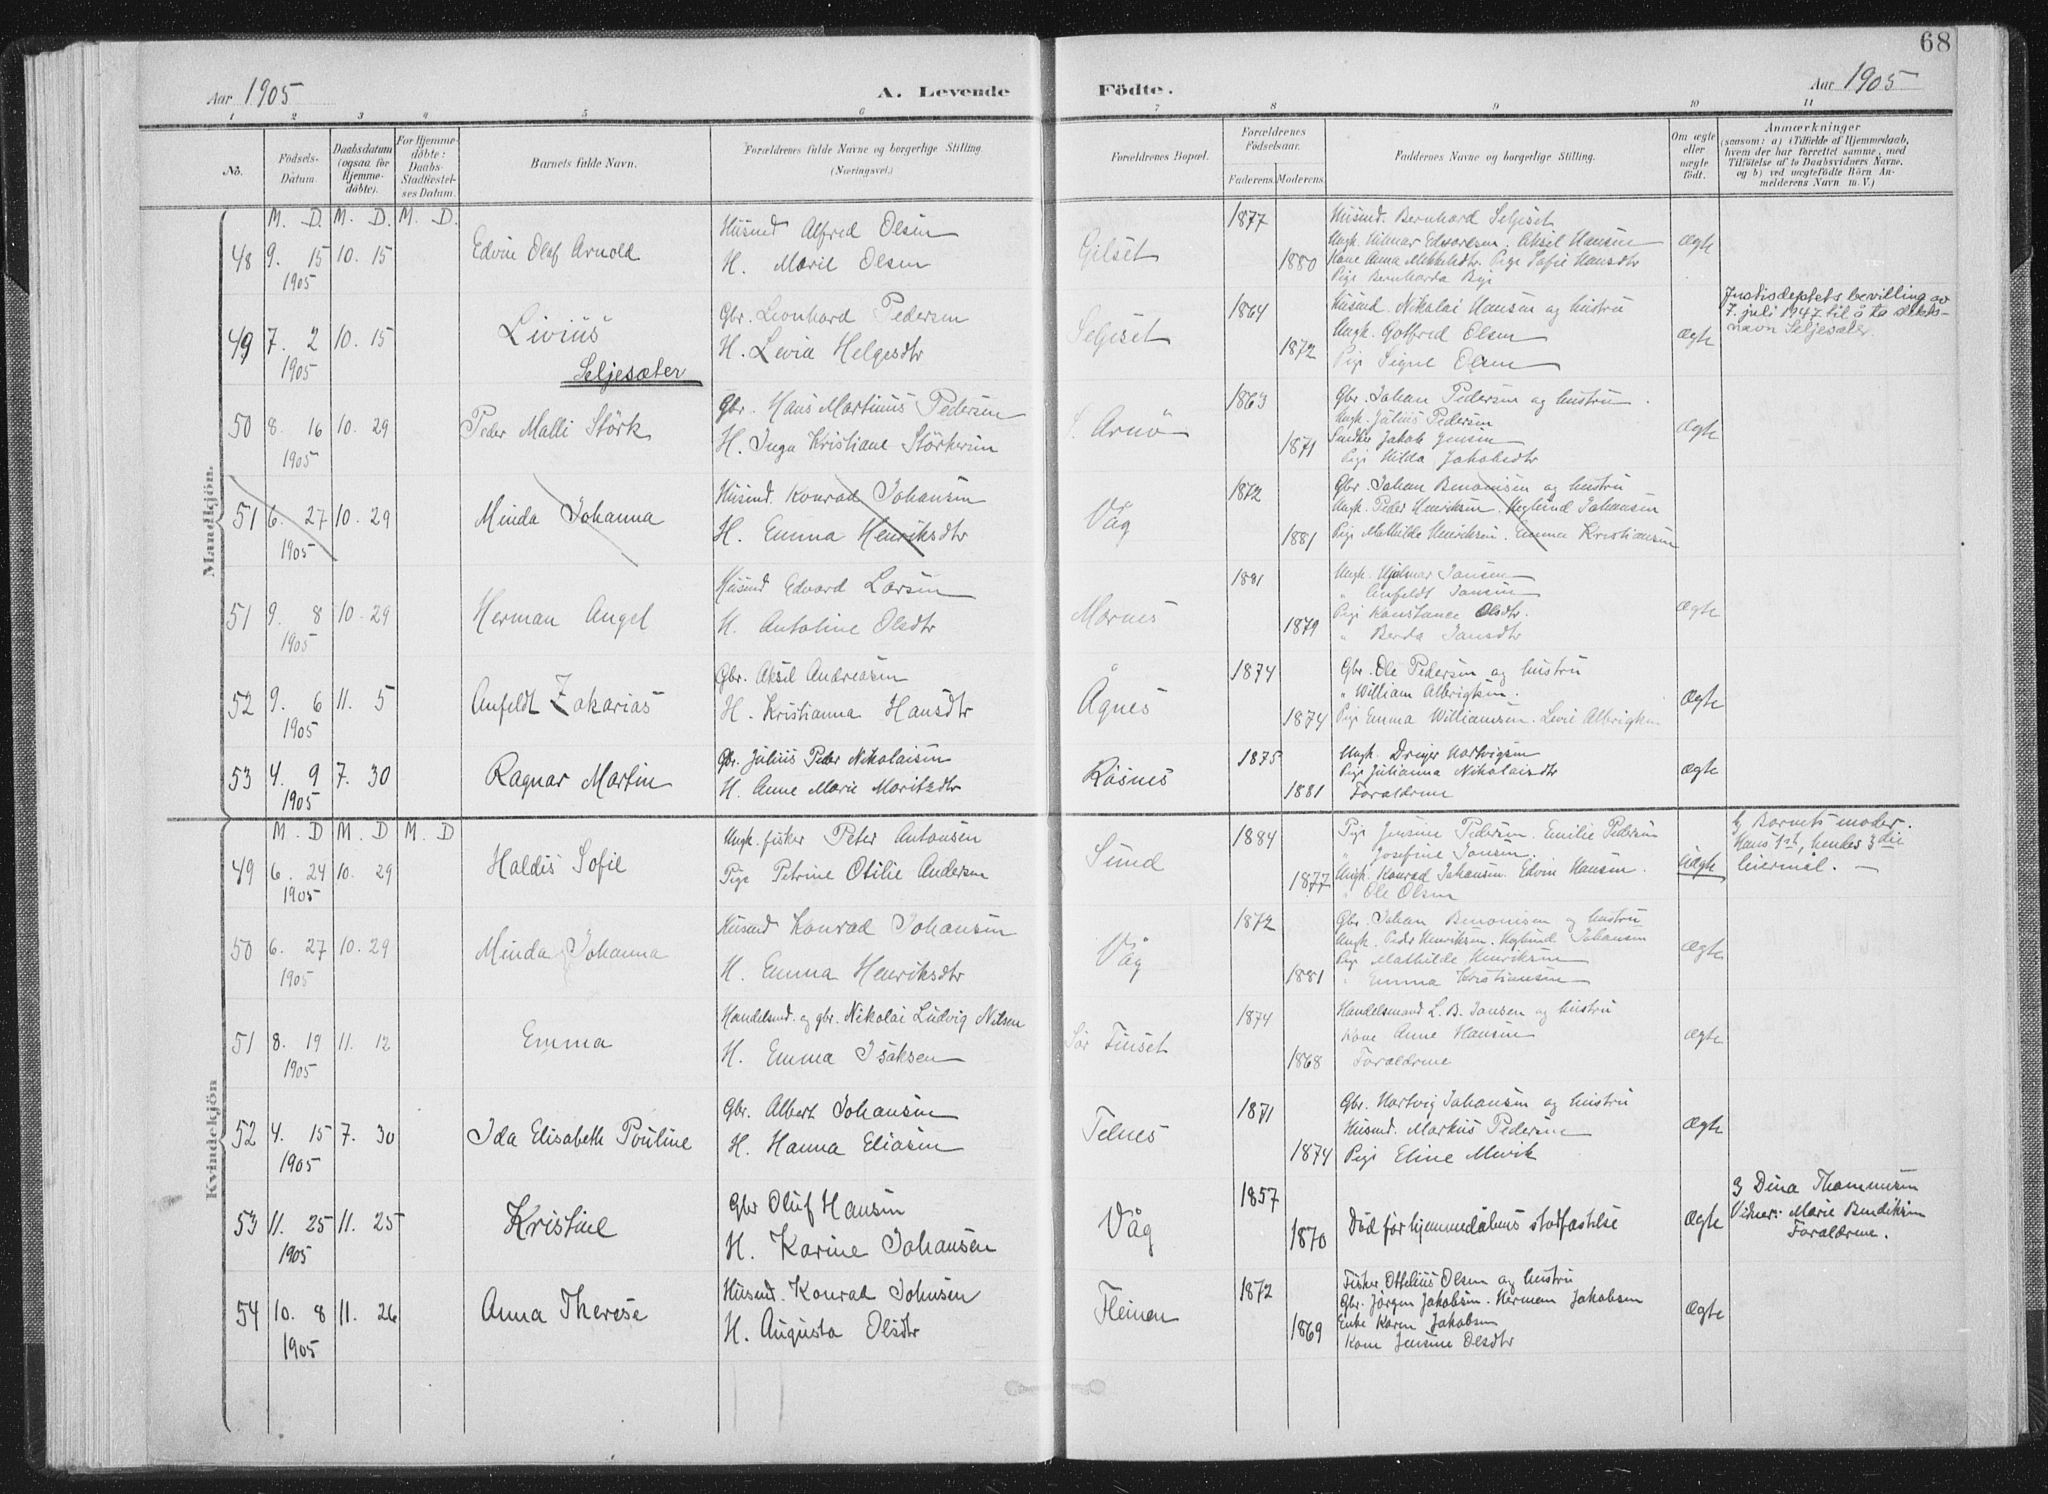 68
Aar 1905 A. Levende Födte. Aar 1905
1 2 3 4 5 6 7 8 9 10 11
No. Födsels-Datum. Daabsdatum (ogsaa for Hjemme-döbte). For Hjemme-döbte: Daabs-Stadfæstel-ses Datum. Barnets fulde Navn. Forældrenes fulde Navne og borgerlige Stilling. (Næringsvei.) Forældrenes Bopæl. Forældrenes Födselsaar. Faderens. Moderens. Faddernes Navne og borgerlige Stilling. Om ægte eller uægte födt. Anmærkninger
(saasom: a) i Tilfælde af Hjemmedaab,
hvem der har forrettet samme, med
Tilföielse af to Daabsvidners Navne,
og b) ved uægtefödte Börn An-
melderens Navn m. V.)
Mandkjön.
M. D. M. D. M. D.
48 9. 15 10. 15 Edvin Olaf Arnold
1905
Husmd Alfred Olsen
H. Marie Olsen
Gilset 1877 1880
Husmd. Bernhard Seljeset
Ungk. Hilmar Edvardsen. Aksel Hansen
Kone Anna Mikkelsdtr. Pige Sofie Hansdtr
Pige Bernharda
Ægte
49 7. 2 10. 15 Livius
1905
Seljesæter
Gbr. Leonhard Pedersen
H. Levia Helgesdtr
Seljeset 1864 1872
Husmd. Nikolai Hansen og hustru
Ungk. Gotfred Olsen
Pige Signe Olsen
Ægte
Justisdeptets bevilling av
7. juli 1947 til å ta slekts-
navn Seljesæter.
50 8. 16 10. 29 Peder Malli Störk
1905
Gbr. Hans Martinus Pedersen
H. Inga Kristiane Störkersen
S. Arnö 1863 1871
Gbr. Johan Pedersen og hustru.
Ungk. Julius Pedersen
Jakob Jensen
Pige Hilda Jakobsdtr
Ægte
51 6. 27 10. 29 Minda Johanna
1905
Husmd. Konrad Johansen
H. Emma Henriksdtr
Våg 1872 1881
Gbr. Johan Benonisen og hustru
Ungk. Peder Henriksen. Heglund Johansen
Pige Mathilde Henriksen. Emma Kristiansen
51 9. 8 10. 29 Herman Angel
1905
Husmd Edvard Larsen
H. Antoline Olsdtr
Mornes 1881 1879
Ungk. Hjalmar Jansen
" Anfeldt Jansen
Pige Konstance Olsdtr.
" Berda Jansdtr
Ægte
52 9. 6 11. 5 Anfeldt Zakarias
1905
Gbr. Aksel Andreasen
H. Kristianna Hansdtr
Ågnes 1874 1874
Gbr. Ole Pedersen og hustru
" William Albrigtsen.
Pige Emma Williamsen. Levie Albrigtsen
Ægte
53 4. 9 7. 30 Ragnar Martin
1905
Gbr. Julius Peder Nikolaisen
H. Anne Marie Moritzdtr
Råsnes 1875 1881
Ungk. Dreyer Hartvigsen
Pige Julianna Nikolaisdtr
Forældrene
Ægte
Kvindekjön
M. D M. D M. D
49 6. 24 10. 29 Haldis Sofie
1905
Ungk. fisker Peter Antonsen
Pige Petrine Otilie Andersen
Sund 1884 1877
Pige Jensine Pedersen. Emilie Pedersen
" Josefine Jansen.
Ungk. Konrad Johansen. Edvin Hansen.
" Ole Olsen
Uægte
b) Barnets moder.
Hans 1st, hendes 3die
leiermål. —
50 6. 27 10. 29 Minda Johanna
1905
Husmd Konrad Johansen
H. Emma Henriksdtr
Våg 1872 1881
Gbr. Johan Benonisen og hustru
Ungk. Peder Henriksen. Heglund Johansen
Pige Mathilde Henriksen
" Emma Kristiansen
Ægte
51 8. 19 11. 12 Emma
1905
Handelsmd. og gbr. Nikolai Ludvig Nilsen
H. Emma Isaksen
Sör Finset 1874 1868
Handelsmand L. B. Jansen og hustru
Kone Anne Hansen
Forældrene
Ægte
52 4. 15 7. 30 Ida Elisabeth Pouline
1905
Gbr. Albert Johansen
H. Hanna Eliasen
Telnes 1871 1874
Gbr. Hartvig Johansen og hustru
Husmd. Markus Pedersen
Pige Eline Mevik
Ægte
53 11. 25 11. 25 Kristine
1905
Gbr Oluf Hansen
H. Karine Johansen
Våg 1857 1870
Död för hjemmedåbens stadfæstelse
Ægte
a) Dina Thommesen
Vidner: Marie Bendiksen
Forældrene.
54 10. 8 11. 26 Anna Therese
1905
Husmd. Konrad Johnsen
H. Augusta Olsdtr
Fleinen 1872 1869
Fisker Ottelius Olsen og hustru
Gbr. Jörgen Jakobsen. Herman Jakobsen
Enke Karen Jakobsen
Kone Jensine Olsdtr
Ægte